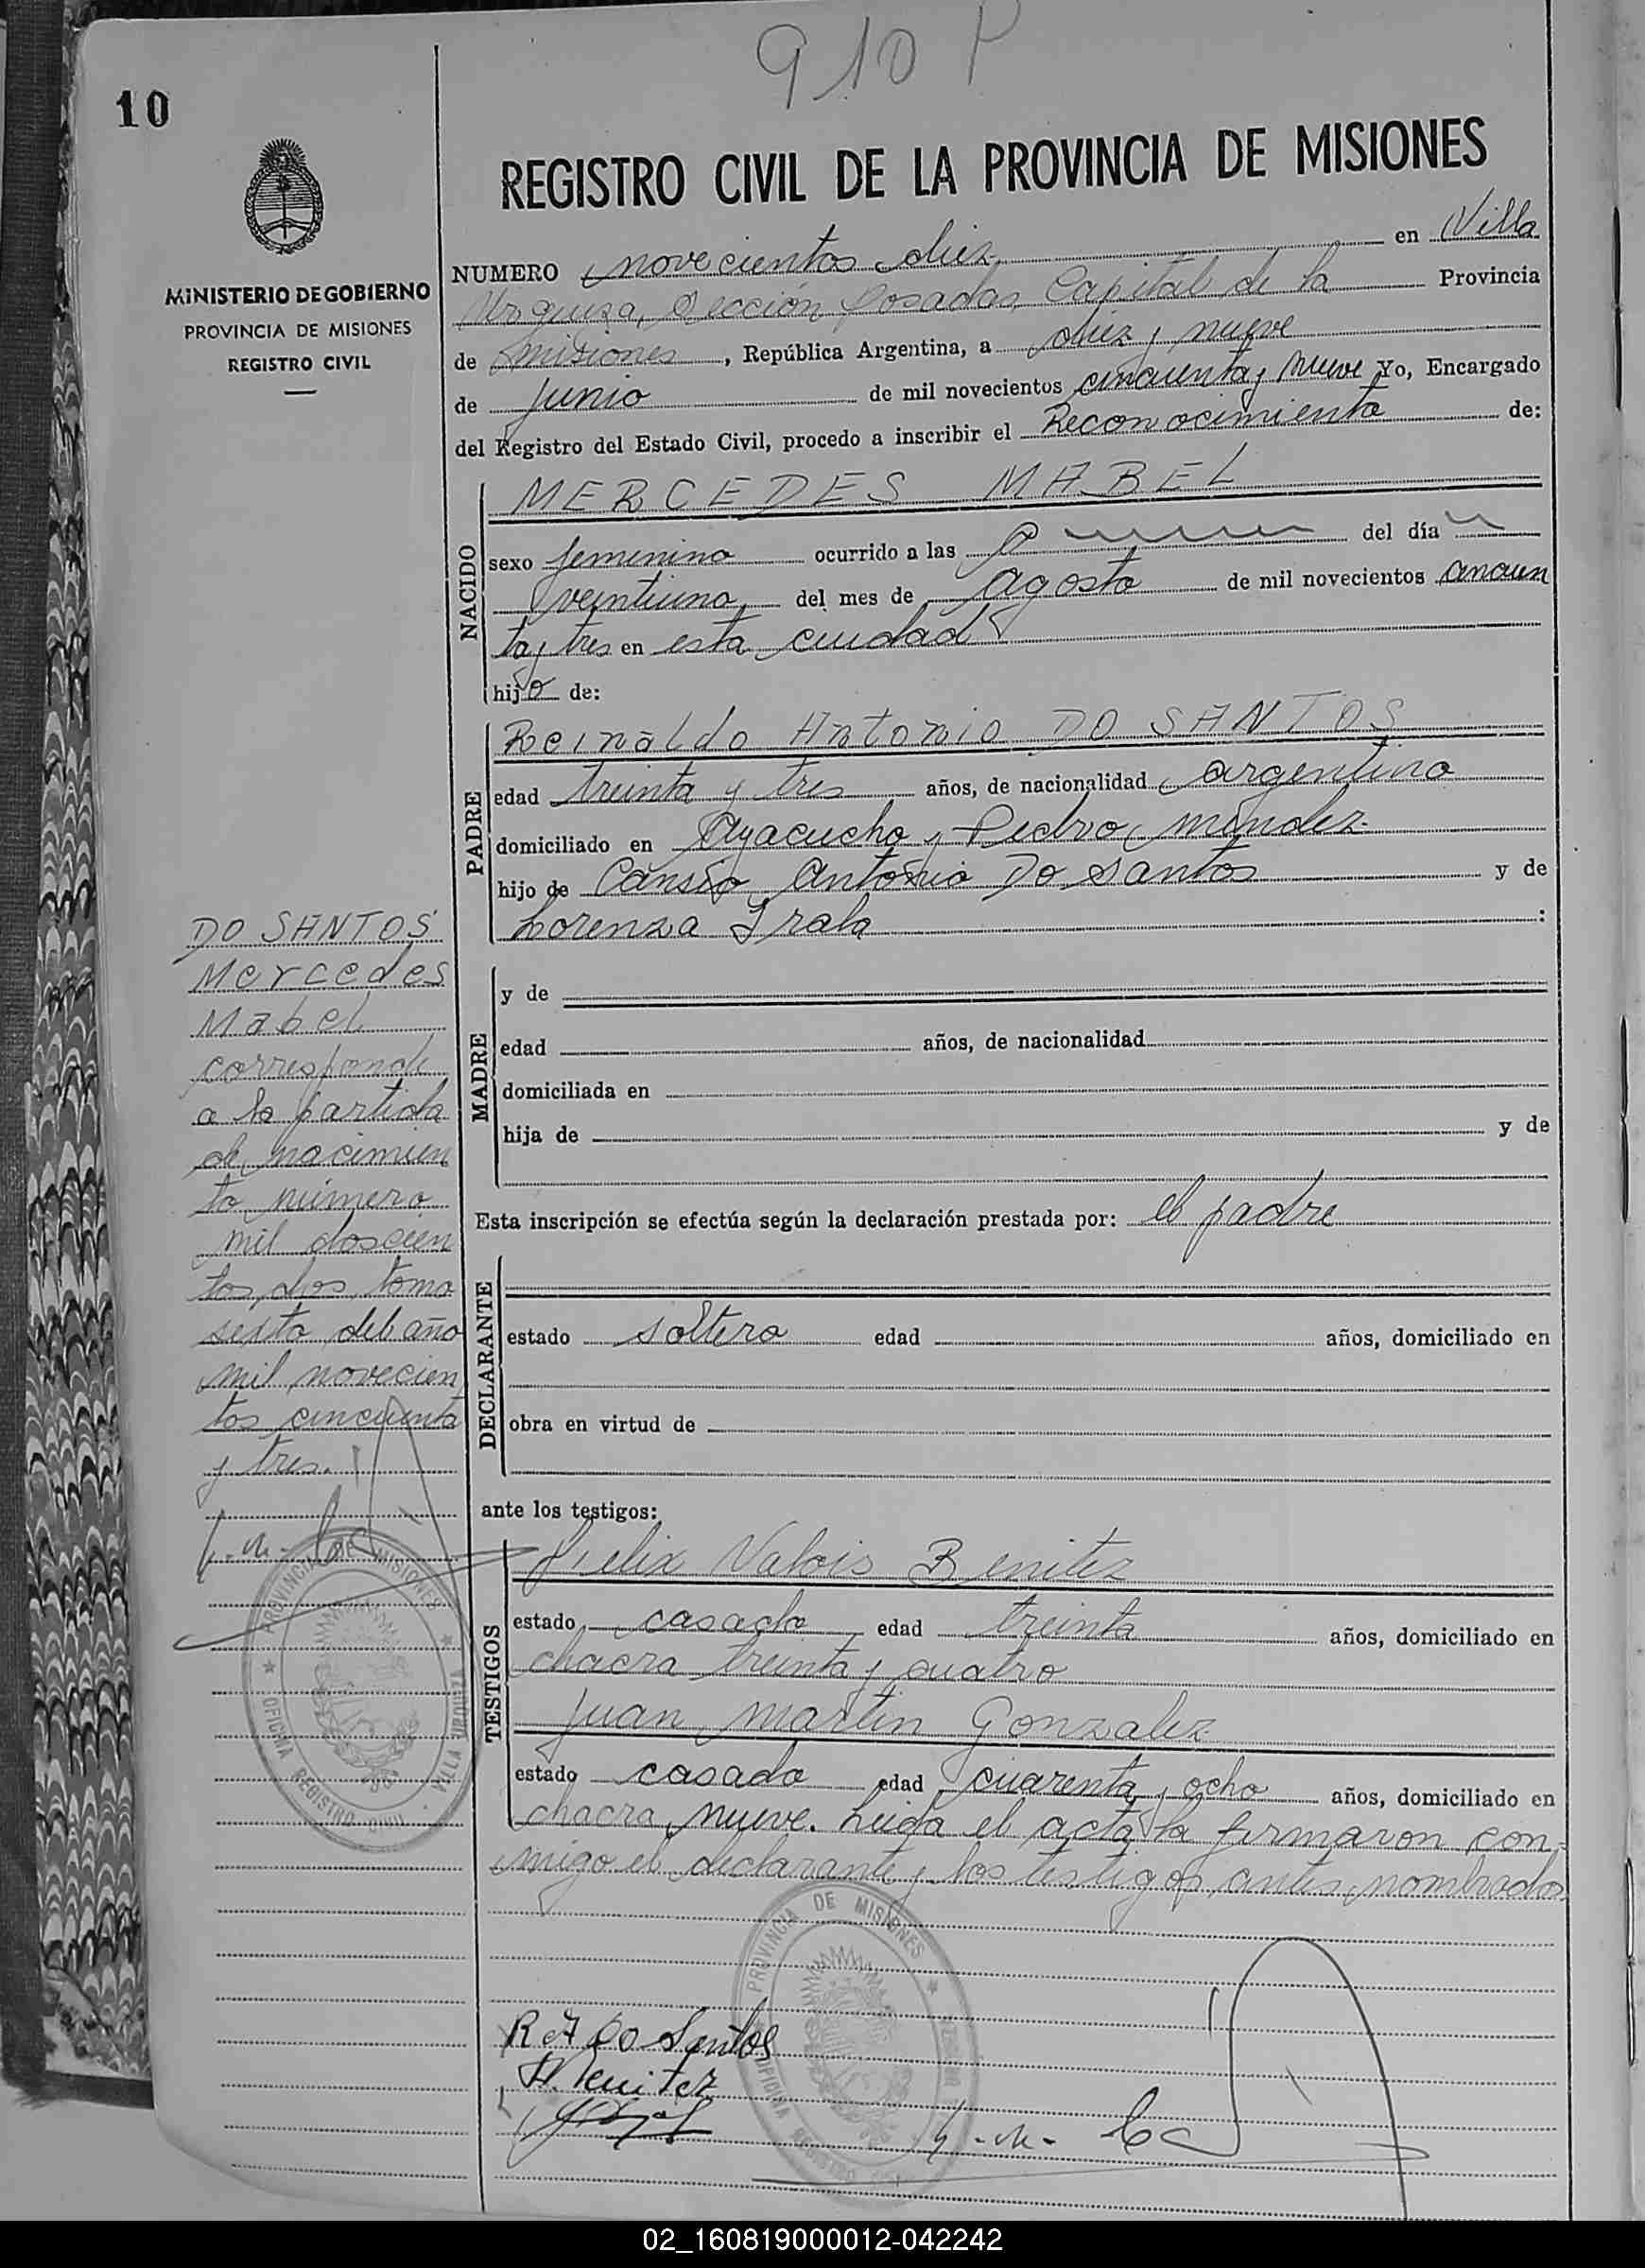 910 P
10
REGISTRO CIVIL DE LA PROVINCIA DE MISIONES
MINISTERIO DE GOBIERNO
PROVINCIA DE MISIONES
REGISTRO CIVIL
NUMERO novecientos diez en Villa
Urquiza, Sección Posadas, Capital de la Provincia
de Misiones, República Argentina, a diez y nueve
de junio de mil novecientos cincuenta y nueve Yo, Encargado
del Registro del Estado Civil, procedo a inscribir el Reconocimiento de:
NACIDO
MERCEDES MABEL
sexo femenino ocurrido a las del día
veintiuno del mes de agosto de mil novecientos cincuen
ta y tres en esta ciudad
hija de:
PADRE
Reinaldo Antonio DO SANTOS
edad treinta y tres años, de nacionalidad argentino
domiciliado en Ayacucho y Pedro Méndez
hijo de Cansio Antonio Do Santos y de
Lorenza Irala :
MADRE
y de
edad años, de nacionalidad
domiciliada en
hija de y de
Esta inscripción se efectúa según la declaración prestada por: el padre
DECLARANTE
estado soltero edad años, domiciliado en
obra en virtud de
ante los testigos:
TESTIGOS
Felix Valois Benitez
estado casado edad treinta años, domiciliado en
chacra treinta y cuatro
Juan Martin Gonzalez
estado casado edad cuarenta y ocho años, domiciliado en
chacra nueve. Leida el acta la firmaron con
migo el declarante y los testigos antes nombrados
DO SANTOS
Mercedes
Mabel
corresponde
a la partida
de nacimien
to número
mil doscien
tos dos tomo
sexto del año
mil novecien
tos cincuenta
y tres.
PROVINCIA DE MISIONES
OFICINA REGISTRO CIVIL · VILLA URQUIZA
R A Do Santos
Benitez
PROVINCIA DE MISIONES
OFICINA REGISTRO CIVIL
02_160819000012-042242